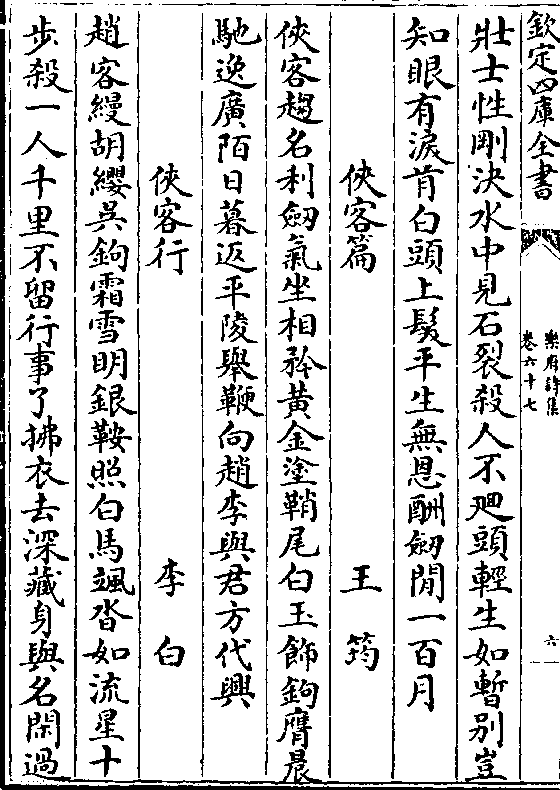 欽定四庫全書
樂府詩集
卷六十七
六
壯士性剛決水中見石裂殺人不廻頭輕生如暫別豈
知眼有淚肯白頭上髮平生無恩酬劒閒一百月
俠客篇 王筠
俠客趨名利劒氣坐相矜黃金塗鞘尾白玉飾鉤膺晨
馳逸廣陌日暮返平陵舉鞭向趙李與君方代興
俠客行 李白
趙客縵胡纓吳鉤霜雪明銀鞍照白馬颯沓如流星十
步殺一人千里不留行事了拂衣去深藏身與名閑過